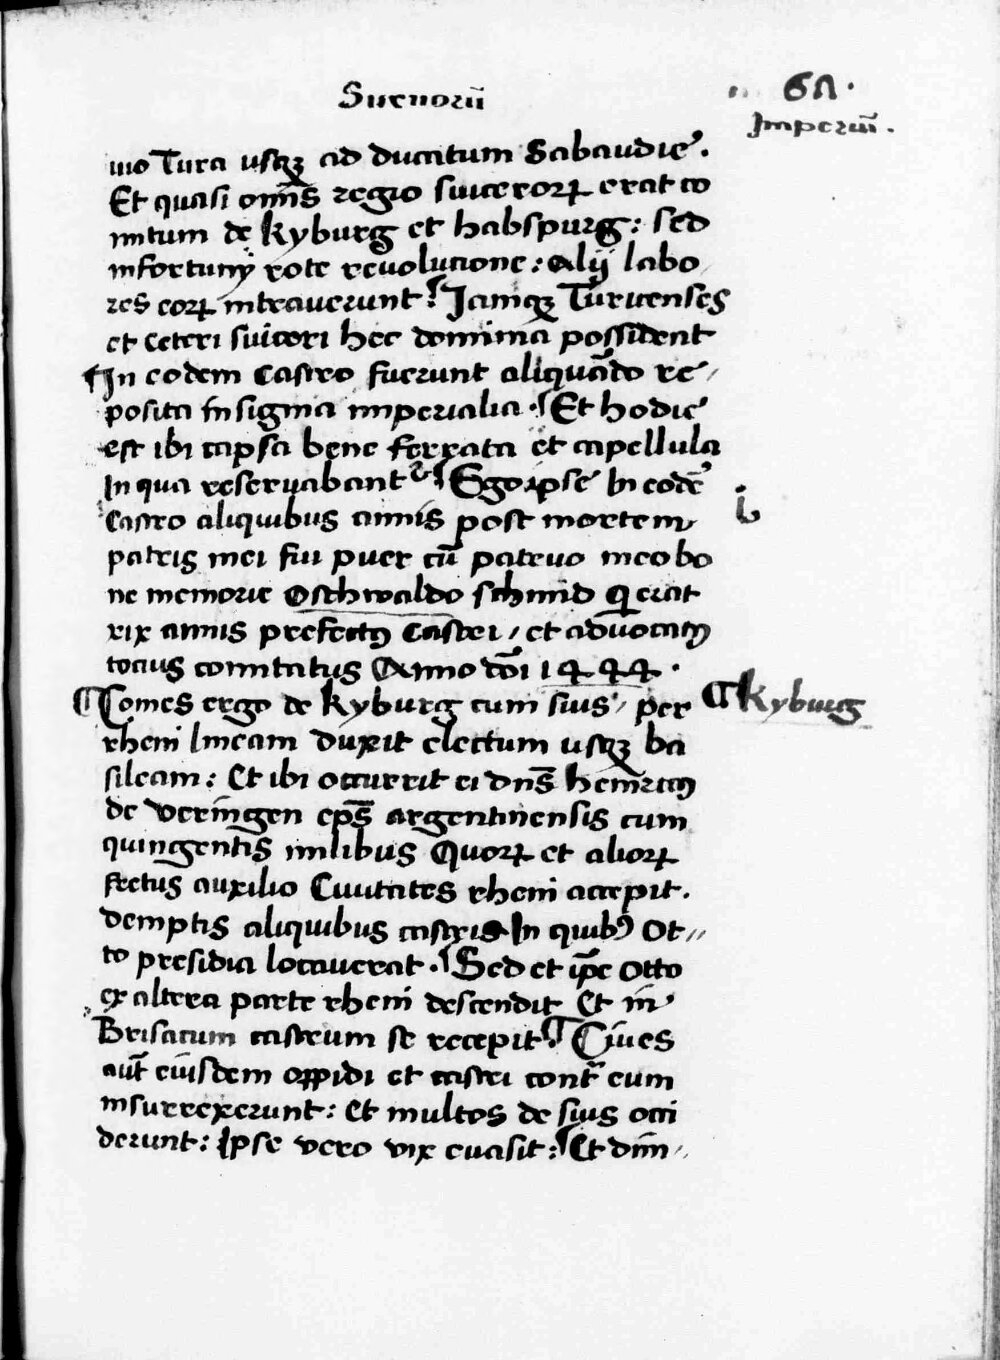 Sueuorū
67.
Imperiū.
uio Tura usqꝫ ad ducatum Sabaudie.
Et quasi om̄s regio suiceroꝝ erat co
mitum de kyburg et habspurg: sed
infortunÿ rote reuolucione: Alÿ labo
res eoꝝ intrauerunt. Iamqꝫ Turicenses
et ceteri suiceri hec dominia possident
¶In eodem Castro fuerunt aliquādo re-
posita insignia imperialia. Et hodie
est ibi capsa bene ferrata et capellula
In qua reseruabant᷑. Ego ipse in eodē
Castro aliquibus annis post mortem
patris mei fui puer cū patruo meo bo
ne memorie Oschwaldo schmid Qi erat
xix annis prefectꝰ Castri, et aduocatꝰ
tocius comitatus Anno dōi 1444.
¶Comes ergo de kyburg cum suis, per
¶kyburg
rheni lineam duxit electum usqꝫ ba
sileam: Et ibi occurrit ei dn̄s heinricꝰ
de veringen ep̄s argentinensis cum
quingentis milibus Quoꝝ et alioꝝ
fretus auxilio Ciuitates rheni accepit.
demptis aliquibus castris In quibꝰ Ot-
to presidia locauerat. Sed et ip̄e Otto
ex altera parte rheni descendit Et in
Brisacum castrum se recepit. Ciues
aut̄ eiusdem oppidi et castri cont᷑ eum
insurrexerunt: Et multos de suis occi
derunt: Ipse vero vix euasit: Et dim-